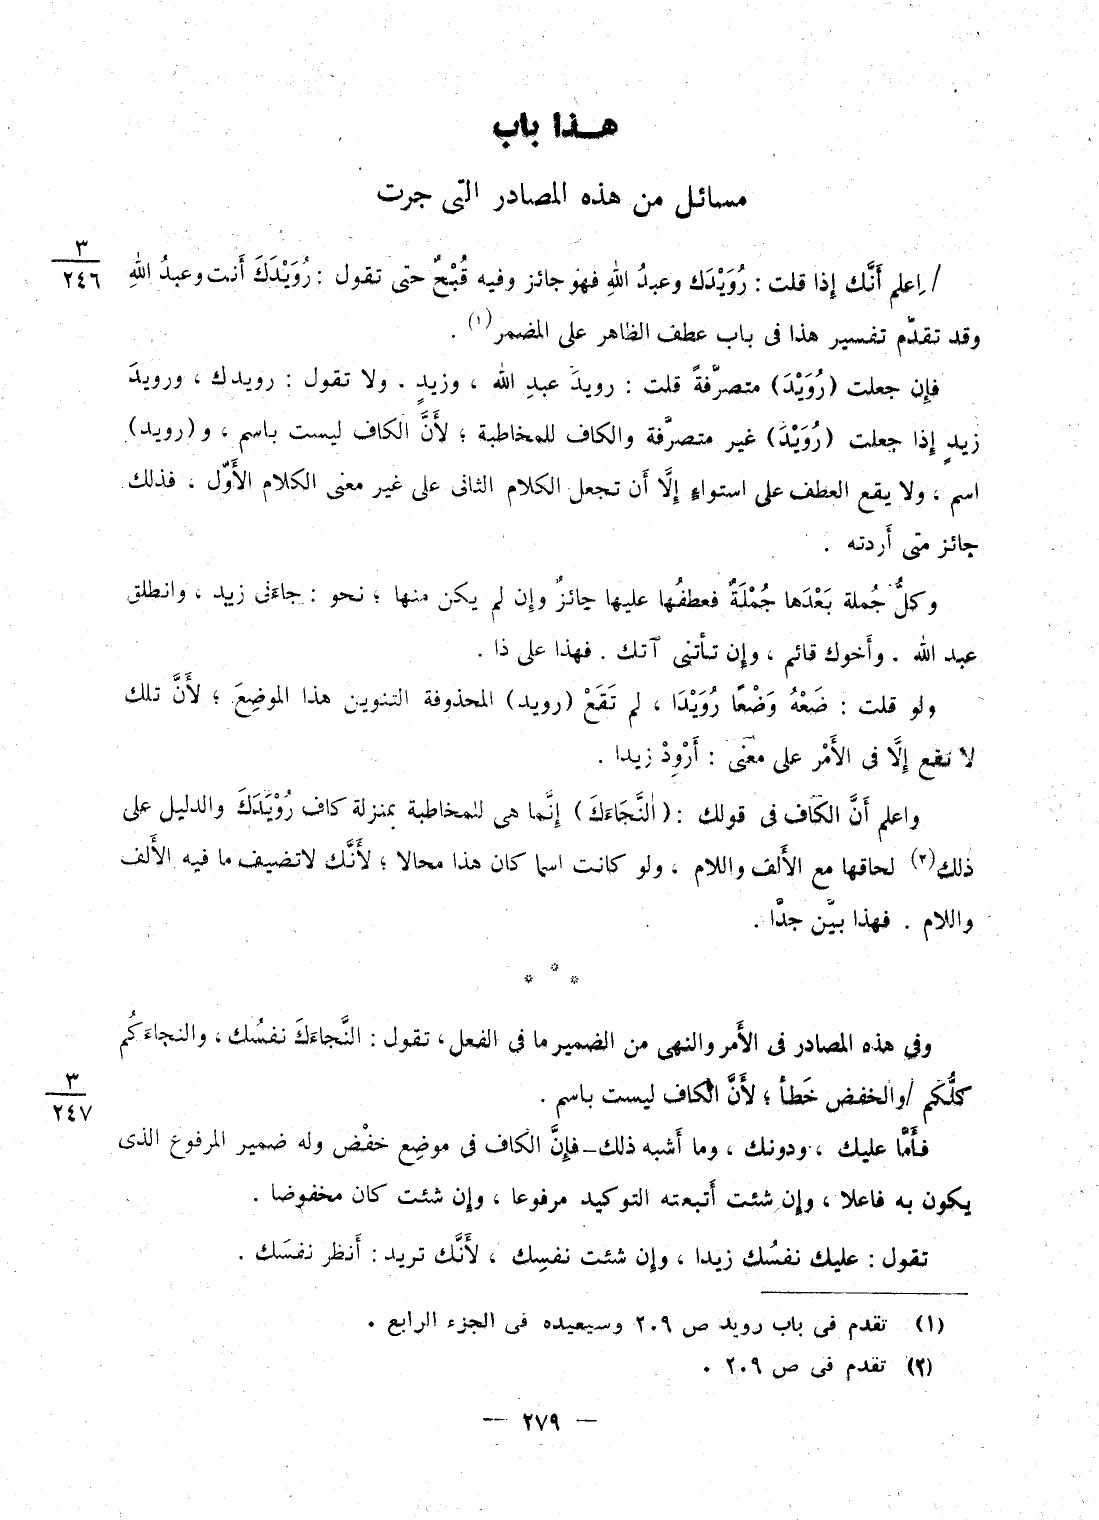 هـذا باب
مسائل من هذه المصادر التى جرت
٣
٢٤٦
/ اِعلم أَنَّك إِذا قلت : رُوَيْدَك وعبدُ اللهِ فهوَ جائز وفيه قُبْحٌ حتى تقول : رُوَيْدَكَ أَنت وعبدُ اللهِ
وقد تقدّم تفسير هذا فى باب عطف الظاهر على المضمر(١) .
فإِن جعلت (رُوَيْدَ) متصرّفةً قلت : رويدَ عبدِ الله ، وزيدٍ . ولا تقول : رويدك ، ورويدَ
زيدٍ إِذا جعلت (رُوَيْدَ) غير متصرَّفة والكاف للمخاطبة ؛ لأَنَّ الكاف ليست باسم ، و(رويد)
اسم ، ولا يقع العطف على استواءٍ إِلَّا أَن تجعل الكلام الثانى على غير معنى الكلام الأَوّل ، فذلك
جائز متى أَردته .
وكلُّ جُملة بَعْدَها جُمْلَةٌ فعطفُها عليها جائزٌ وإِن لم يكن منها ؛ نحو : جاءَنى زيد ، وانطلق
عبد الله . وأَخوك قائم ، وإِن تأْتنى آتك . فهذا على ذا .
ولو قلت : ضَعْهُ وَضْعًا رُوَيْدَا ، لم تَقَعْ (رويد) المحذوفة التنوين هذا الموضِعَ ؛ لأَنَّ تلك
لا تقع إِلَّا فى الأَمْر على معْنى : أَرْوِدْ زيدا .
واعلم أَنَّ الكاف فى قولك : (النَّجَاءَكَ) إِنَّما هى للمخاطبة بمنزلة كاف رُوْيَدَكَ والدليل على
ذلك(٢) لحاقها مع الأَلف واللام ، ولو كانت اسما كان هذا محالا ؛ لأَنَّك لاتضيف ما فيه الأَلف
واللام . فهذا بيّن جدَّا .
* * *
وفى هذه المصادر فى الأَمر والنهى من الضمير ما فى الفعل، تقول : النَّجاءَكَ نفسُك، والنجاءَكُم
٣
٢٤٧
كلُّكم /والخفض خَطأ ؛ لأَنَّ الكاف ليست باسم .
فأَمَّا عليك ، ودونك ، وما أَشبه ذلك ـ فإِنَّ الكاف فى موضِع خفْض وله ضمير المرفوع الذى
يكون به فاعلا ، وإِن شئت أَتبعته التوكيد مرفوعا ، وإِن شئت كان مخفوضا .
تقول : عليك نفسُك زيدا ، وإِن شئت نفسِك ، لأَنَّك تريد : أَنظر نفسَك .
(١) تقدم فى باب رويد ص ٢٠٩ وسيعيده فى الجزء الرابع .
(٢) تقدم فى ص ٢٠٩ .
— ٢٧٩ —